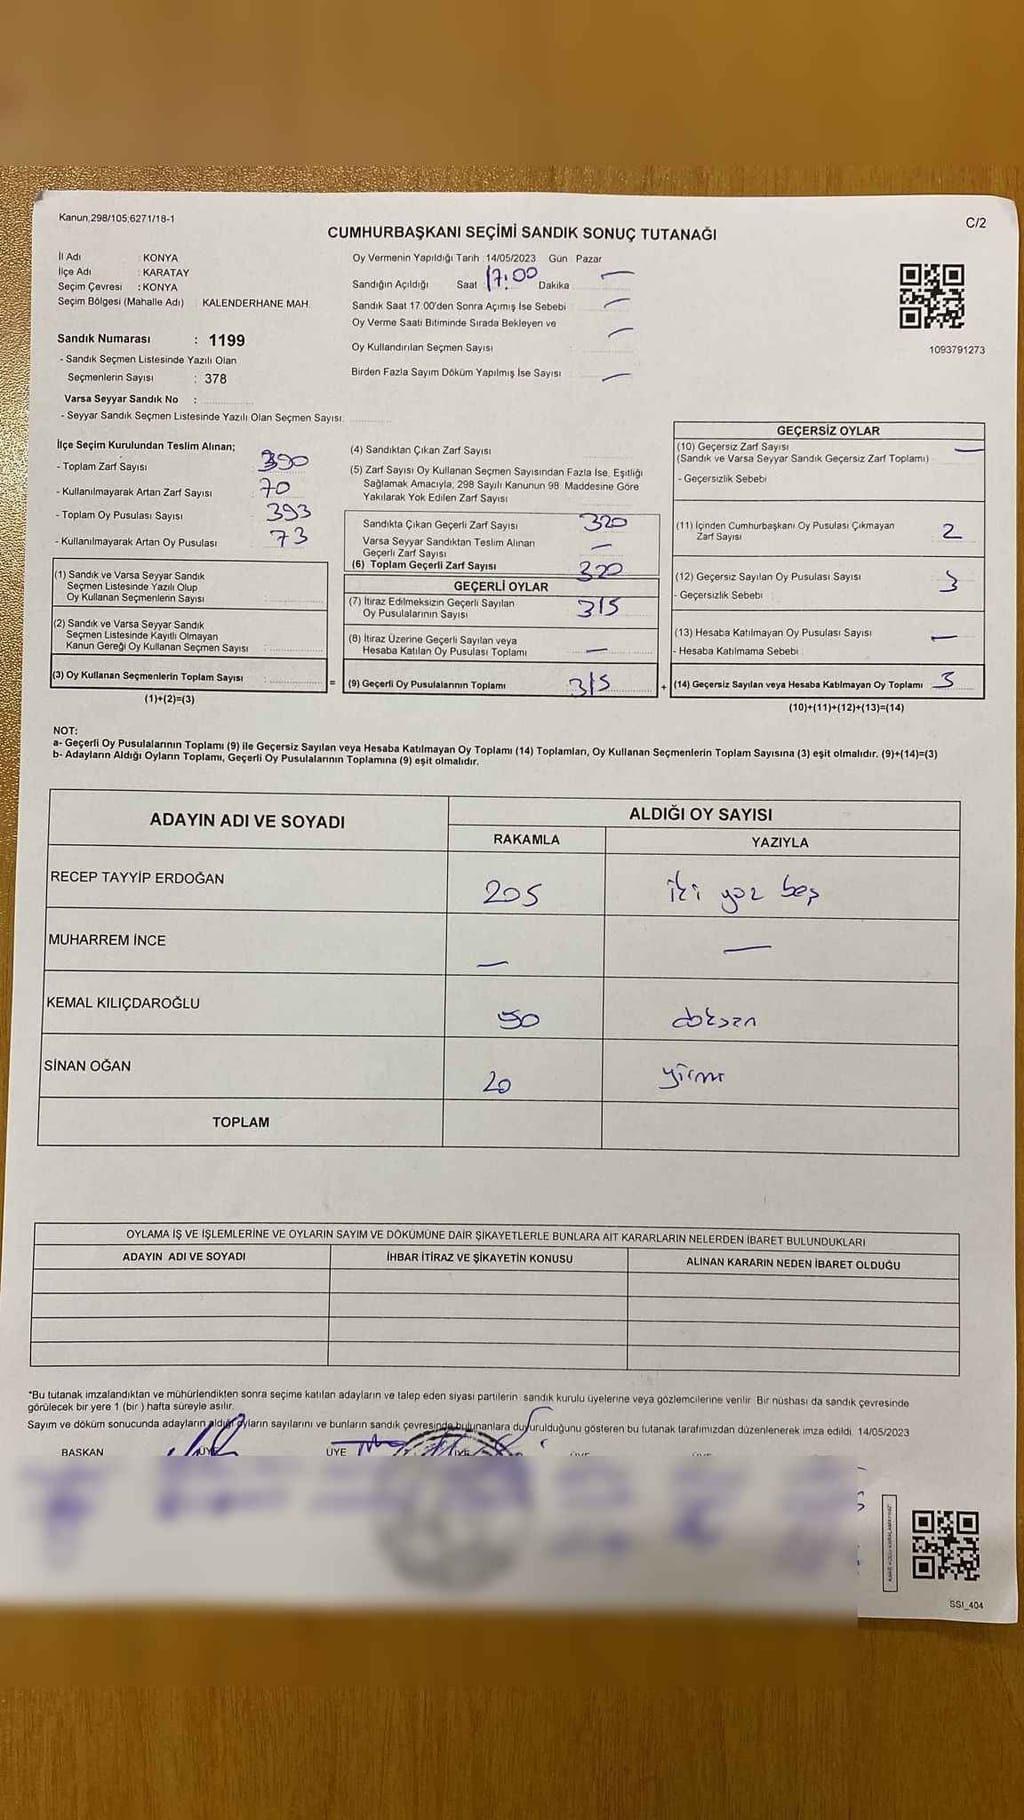 Kanun,298/105,6271/18-1
C/2
CUMHURBAŞKANI SEÇİMİ SANDIK SONUÇ TUTANAĞI
İl Adı KONYA
İlçe Adı : KARATAY
Seçim Çevresi : KONYA
Seçim Bölgesi (Mahalle Adı) KALENDERHANE MAH.
Sandık Numarası : 1199
- Sandık Seçmen Listesinde Yazılı Olan
Seçmenlerin Sayısı : 378
Varsa Seyyar Sandık No :
- Seyyar Sandık Seçmen Listesinde Yazılı Olan Seçmen Sayısı:
Oy Vermenin Yapıldığı Tarih :14/05/2023 Gün : Pazar
Sandığın Açıldığı Saat : 17:00 Dakika —
Sandık Saat 17.00'den Sonra Açımış İse Sebebi —
Oy Verme Saati Bitiminde Sırada Bekleyen ve
Oy Kullandırılan Seçmen Sayısı —
Birden Fazla Sayım Döküm Yapılmış İse Sayısı —
1093791273
İlçe Seçim Kurulundan Teslim Alınan;
- Toplam Zarf Sayısı 390
- Kullanılmayarak Artan Zarf Sayısı 70
- Toplam Oy Pusulası Sayısı 393
- Kullanılmayarak Artan Oy Pusulası 73
(1) Sandık ve Varsa Seyyar Sandık
Seçmen Listesinde Yazılı Olup
Oy Kullanan Seçmenlerin Sayısı
(2) Sandık ve Varsa Seyyar Sandık
Seçmen Listesinde Kayıtlı Olmayan
Kanun Gereği Oy Kullanan Seçmen Sayısı :
(3) Oy Kullanan Seçmenlerin Toplam Sayısı :
(1)+(2)=(3)
(4) Sandıktan Çıkan Zarf Sayısı
(5) Zarf Sayısı Oy Kullanan Seçmen Sayısından Fazla İse, Eşitliği
Sağlamak Amacıyla, 298 Sayılı Kanunun 98. Maddesine Göre
Yakılarak Yok Edilen Zarf Sayısı
Sandıkta Çıkan Geçerli Zarf Sayısı 320
Varsa Seyyar Sandıktan Teslim Alınan
Geçerli Zarf Sayısı —
(6) Toplam Geçerli Zarf Sayısı 320
GEÇERLİ OYLAR
(7) İtiraz Edilmeksizin Geçerli Sayılan
Oy Pusulalarının Sayısı 315
(8) İtiraz Üzerine Geçerli Sayılan veya
Hesaba Katılan Oy Pusulası Toplamı —
= (9) Geçerli Oy Pusulalarının Toplamı 315
GEÇERSİZ OYLAR
(10) Geçersiz Zarf Sayısı —
(Sandık ve Varsa Seyyar Sandık Geçersiz Zarf Toplamı)
- Geçersizlik Sebebi
(11) İçinden Cumhurbaşkanı Oy Pusulası Çıkmayan
Zarf Sayısı 2
(12) Geçersiz Sayılan Oy Pusulası Sayısı 3
- Geçersizlik Sebebi
(13) Hesaba Katılmayan Oy Pusulası Sayısı —
- Hesaba Katılmama Sebebi
+ (14) Geçersiz Sayılan veya Hesaba Katılmayan Oy Toplamı 3
(10)+(11)+(12)+(13)=(14)
NOT:
a- Geçerli Oy Pusulalarının Toplamı (9) ile Geçersiz Sayılan veya Hesaba Katılmayan Oy Toplamı (14) Toplamları, Oy Kullanan Seçmenlerin Toplam Sayısına (3) eşit olmalıdır. (9)+(14)=(3)
b- Adayların Aldığı Oyların Toplamı, Geçerli Oy Pusulalarının Toplamına (9) eşit olmalıdır.
ADAYIN ADI VE SOYADI
ALDIĞI OY SAYISI
RAKAMLA YAZIYLA
RECEP TAYYİP ERDOĞAN 205 iki yüz beş
MUHARREM İNCE — —
KEMAL KILIÇDAROĞLU 90 doksan
SİNAN OĞAN 20 yirmi
TOPLAM
OYLAMA İŞ VE İŞLEMLERİNE VE OYLARIN SAYIM VE DÖKÜMÜNE DAİR ŞİKAYETLERLE BUNLARA AİT KARARLARIN NELERDEN İBARET BULUNDUKLARI
ADAYIN ADI VE SOYADI İHBAR İTİRAZ VE ŞİKAYETİN KONUSU ALINAN KARARIN NEDEN İBARET OLDUĞU
*Bu tutanak imzalandıktan ve mühürlendikten sonra seçime katılan adayların ve talep eden siyasi partilerin sandık kurulu üyelerine veya gözlemcilerine verilir. Bir nüshası da sandık çevresinde
görülecek bir yere 1 (bir ) hafta süreyle asılır.
Sayım ve döküm sonucunda adayların aldığı oyların sayılarını ve bunların sandık çevresinde bulunanlara duyurulduğunu gösteren bu tutanak tarafımızdan düzenlenerek imza edildi. 14/05/2023
BAŞKAN ÜYE ÜYE
SSI_404